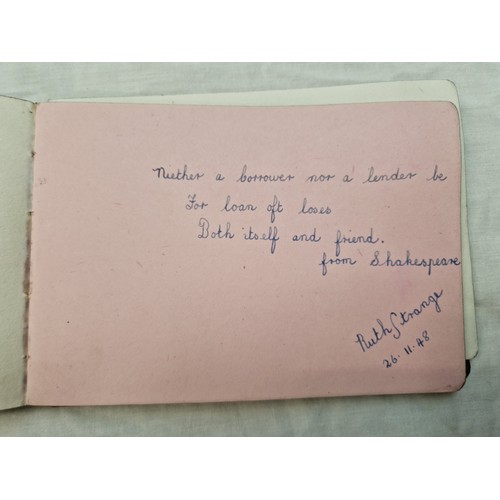 Niether a borrower nor a lender be
For loan oft loses
Both itself and friend.
from Shakespeare
Ruth Strange
26.11.48